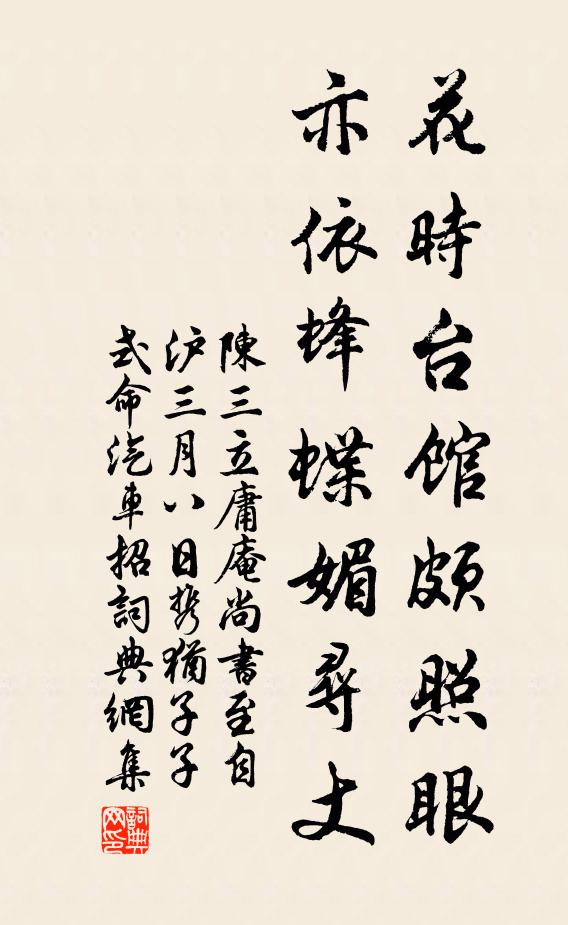 花時台馆頗照眼
亦依蜂蝶媚尋丈
陳三立庸庵尚書至自
沪三月八日携猶子子
式命汽車招詞典網集
詞典网印